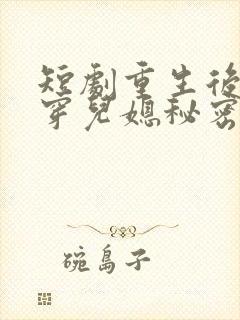 短劇重生後
穿兒媳秘密
碗島子